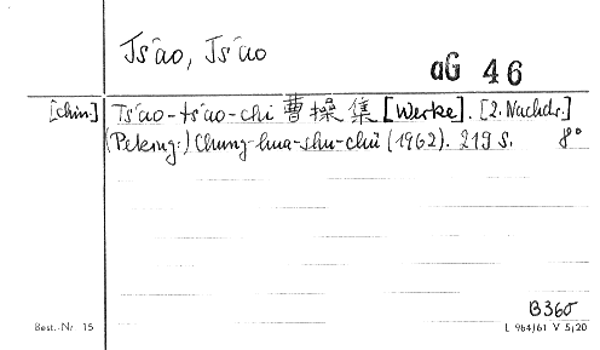 Ts'ao, Ts'ao
aG 46
[chin.] Ts'ao-ts'ao-chi 曹操集 [Werke]. [2. Nachdr.]
(Peking:) Chung-hua-shu-chü (1962). 219 S. 8°
B360
Best.-Nr 15 L 964/61 V 5/20